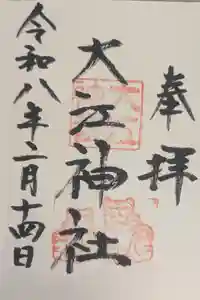 奉拝
大江神社
令和八年二月十四日